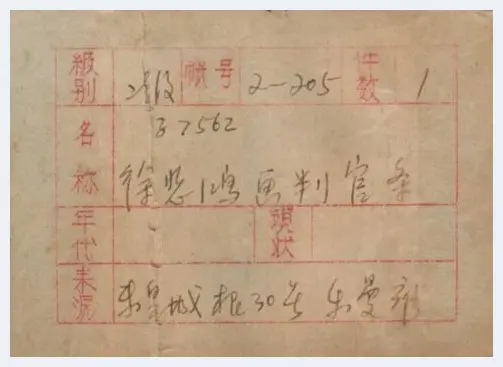 級别 2级 账号 2-205 件数 1
37562
名称 徐悲鸿画判官条
年代 現状
来源 东皇城根30号 朱曼